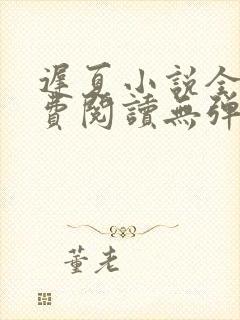 遲夏小説全
費閱讀無彈
董老